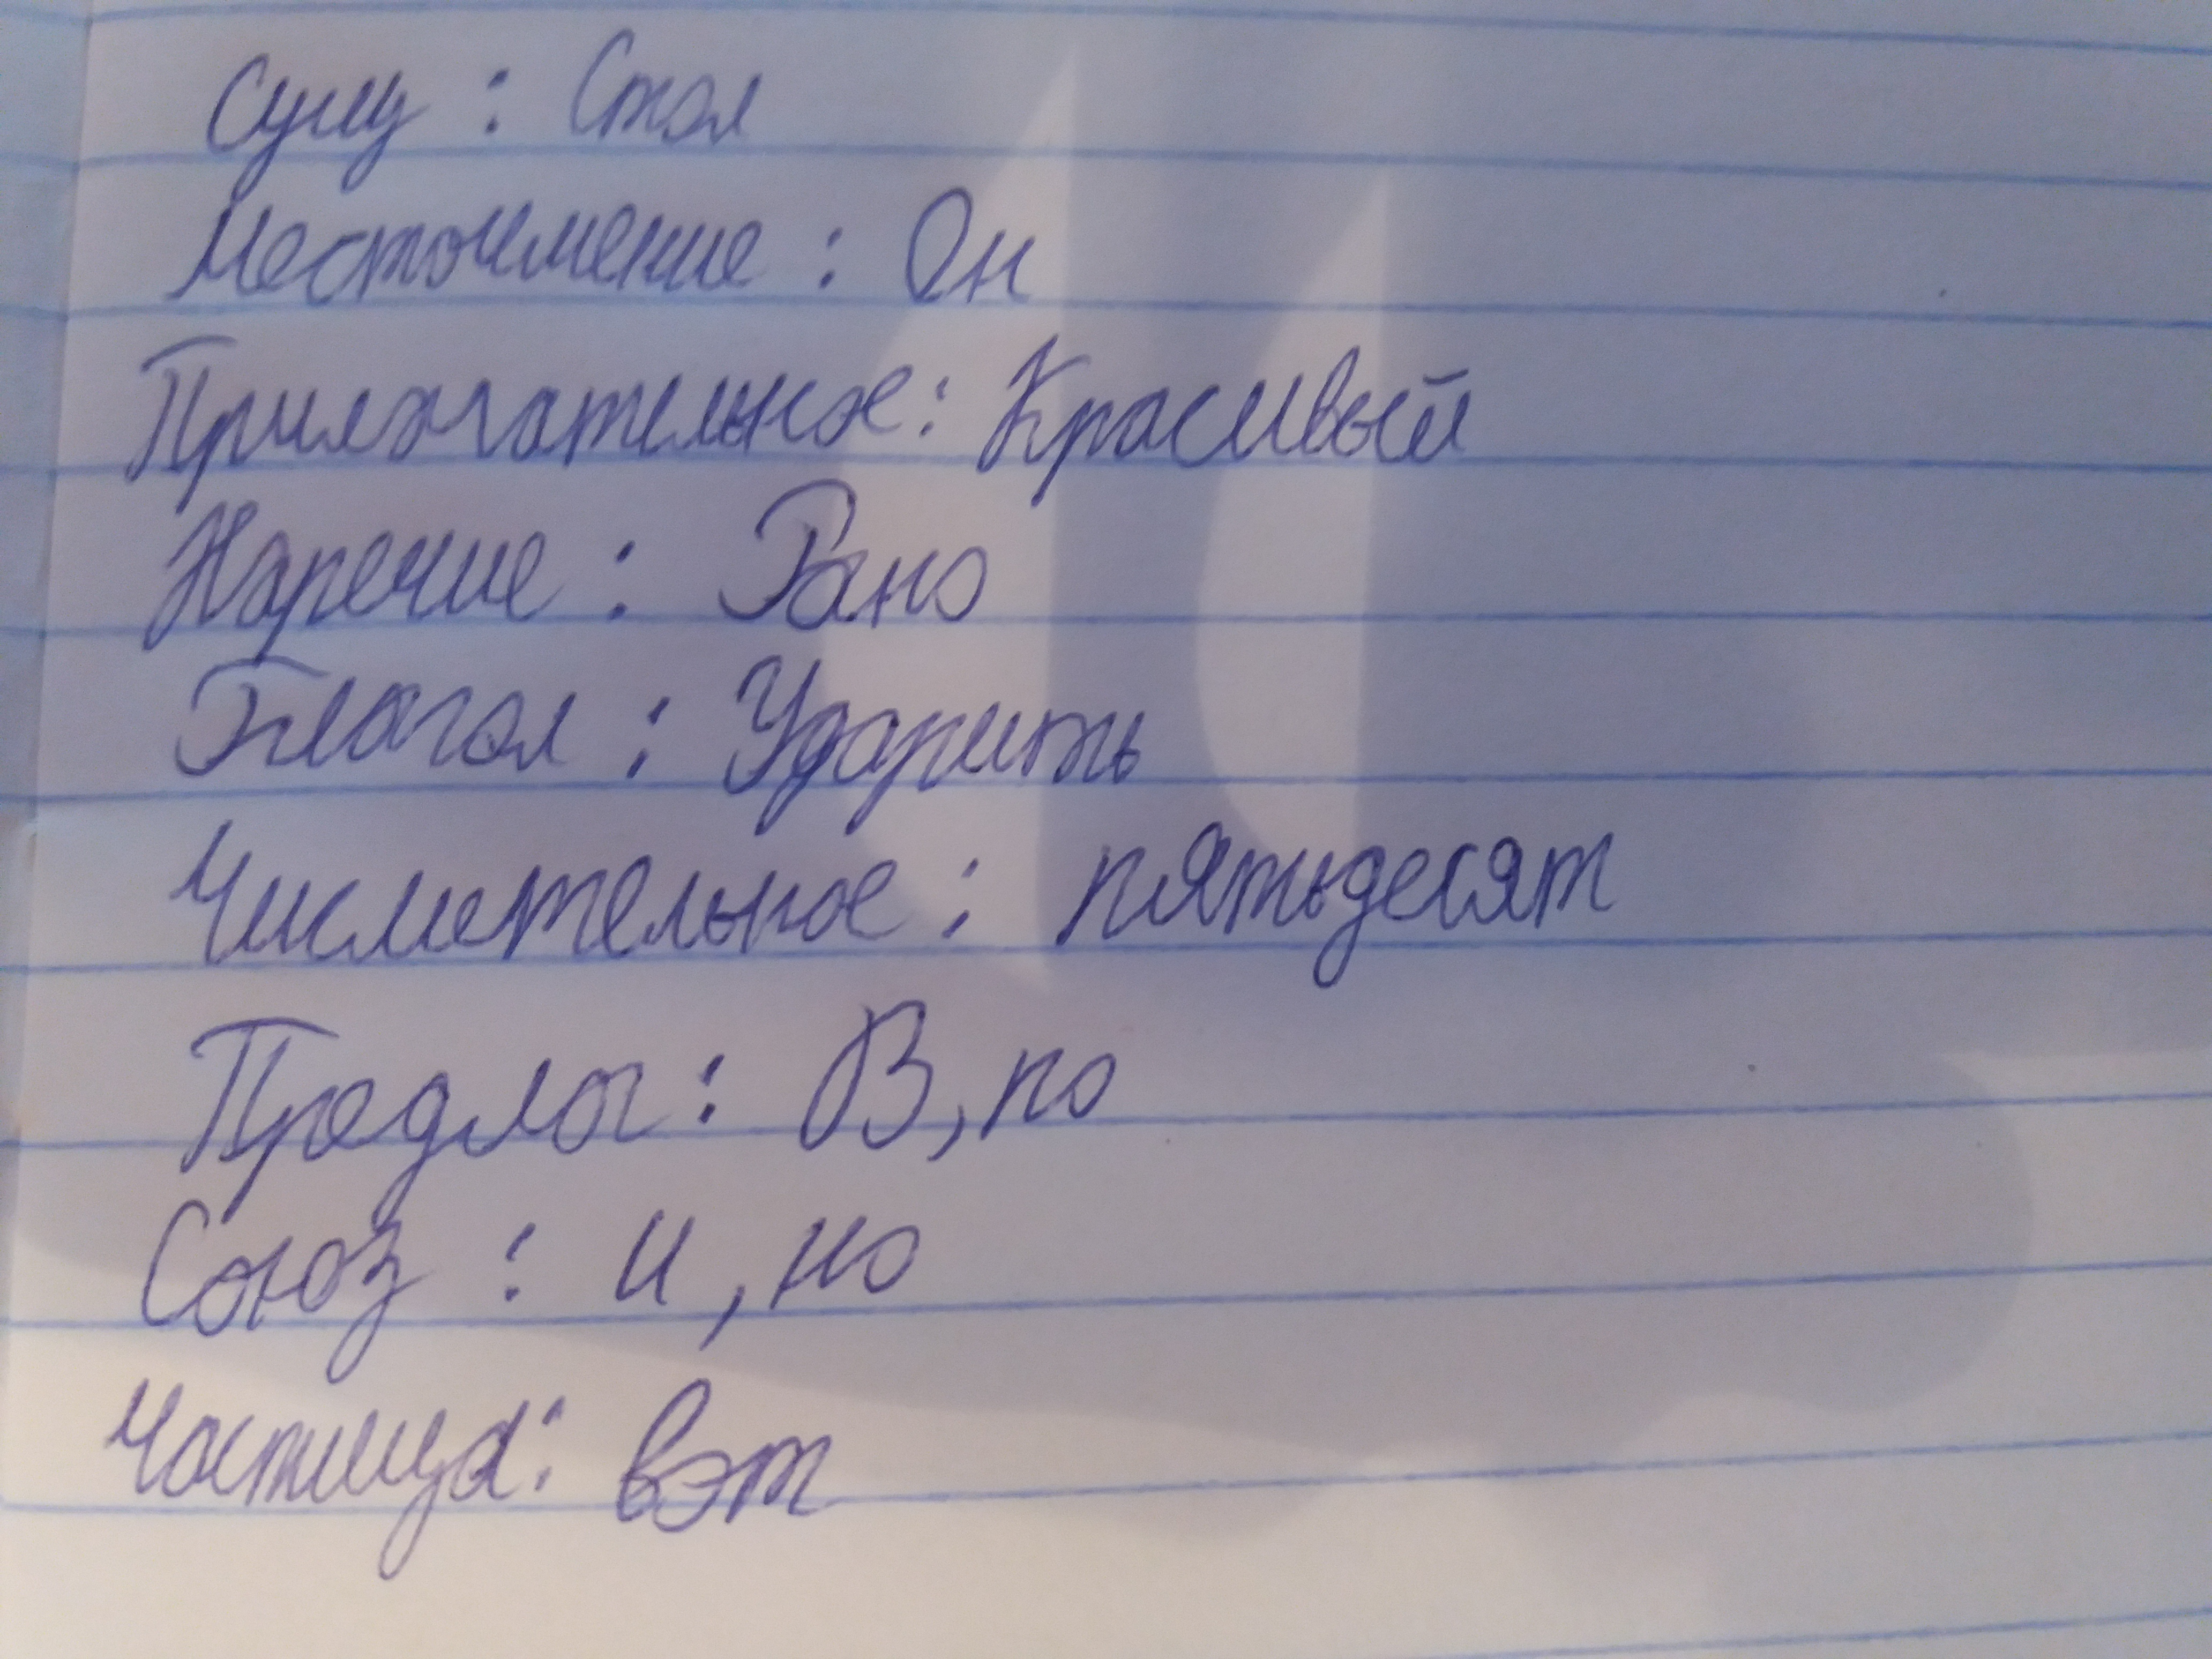 Сущ : Стол
Местоимение : Он
Прилагательное : Красивый
Наречие : Рано
Глагол : Ударить
Числительное : пятьдесят
Предлог : В, по
Союз : и, но
Частица : вот